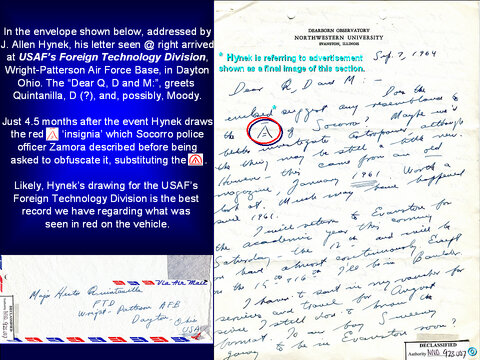 In the envelope shown below, addressed by
J. Allen Hynek, his letter seen @ right arrived
at USAF's Foreign Technology Division,
Wright-Patterson Air Force Base, in Dayton
Ohio. The "Dear Q, D and M:", greets
Quintanilla, D (?), and, possibly, Moody.
Just 4.5 months after the event Hynek draws
the red 'insignia' which Socorro police
officer Zamora described before being
asked to obfuscate it, substituting the .
Likely, Hynek's drawing for the USAF's
Foreign Technology Division is the best
record we have regarding what was
seen in red on the vehicle.
Via Air Mail
Major Hector Quintanilla
FTD
Wright-Patterson AFB
Dayton, Ohio
USA
DEARBORN OBSERVATORY
NORTHWESTERN UNIVERSITY
EVANSTON, ILLINOIS
Sep. 7, 1964
* Hynek is referring to advertisement
shown as a final image of this section.
Dear Q, D and M:-
Does the
* enclosed suggest any resemblance to
the of Socorro? Maybe we'd
better investigate Astropower, although
the thing may be still a little new.
However this came from an old
magazine, January 1961. Worth a
look at. Much may have happened
since 1961.
I will return to Evanston for
the academic year this coming
Saturday the 12th and will be
on hand almost continuously. Except
the 15th & 16th I'll be in Boulder.
I haven't sent in my voucher for
services and travel for August
since I still don't know the
format. Is Sweeney
going to be in Evanston soon?
DECLASSIFIED
Authority NND 923007